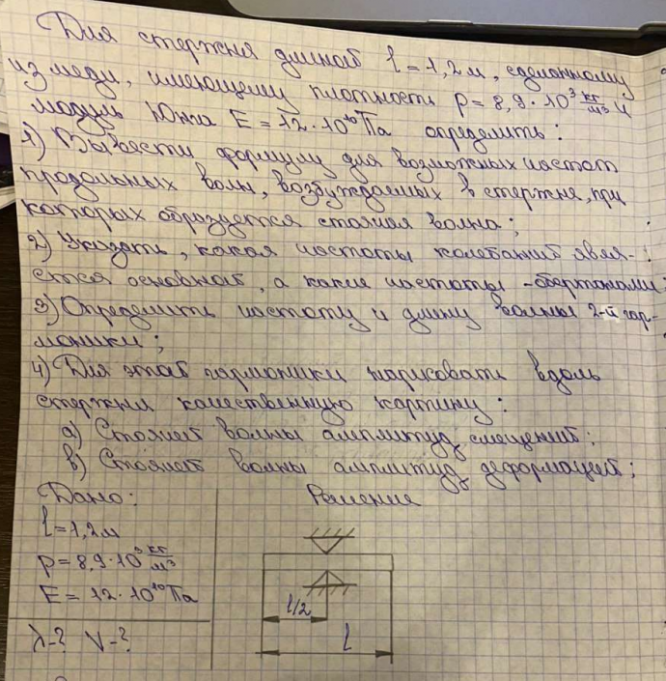 Для стержня длиной l = 1,2 м, сделанному
из меди, имеющему плотность ρ = 8,9·10³ кг/м³ и
модуль Юнга E = 12·10¹⁰ Па определить:
1) Вывести формулу для возможных частот
продольных волн, возбуждаемых в стержня, при
которых образуется стоячая волна;
2) Указать, какая частоты колебаний явля-
ется основной, а какие частоты - обертонами;
3) Определить частоту и длину волны 2-й гар-
моники;
4) Для этой гармоники нарисовать вдоль
стержня качественную картину:
а) Стоячей волны амплитуд смещений;
в) Стоячей волны амплитуд деформаций;
Дано:
l = 1,2 м
ρ = 8,9·10³ кг/м³
E = 12·10¹⁰ Па
λ-? ν-?
Решение
l/2
l